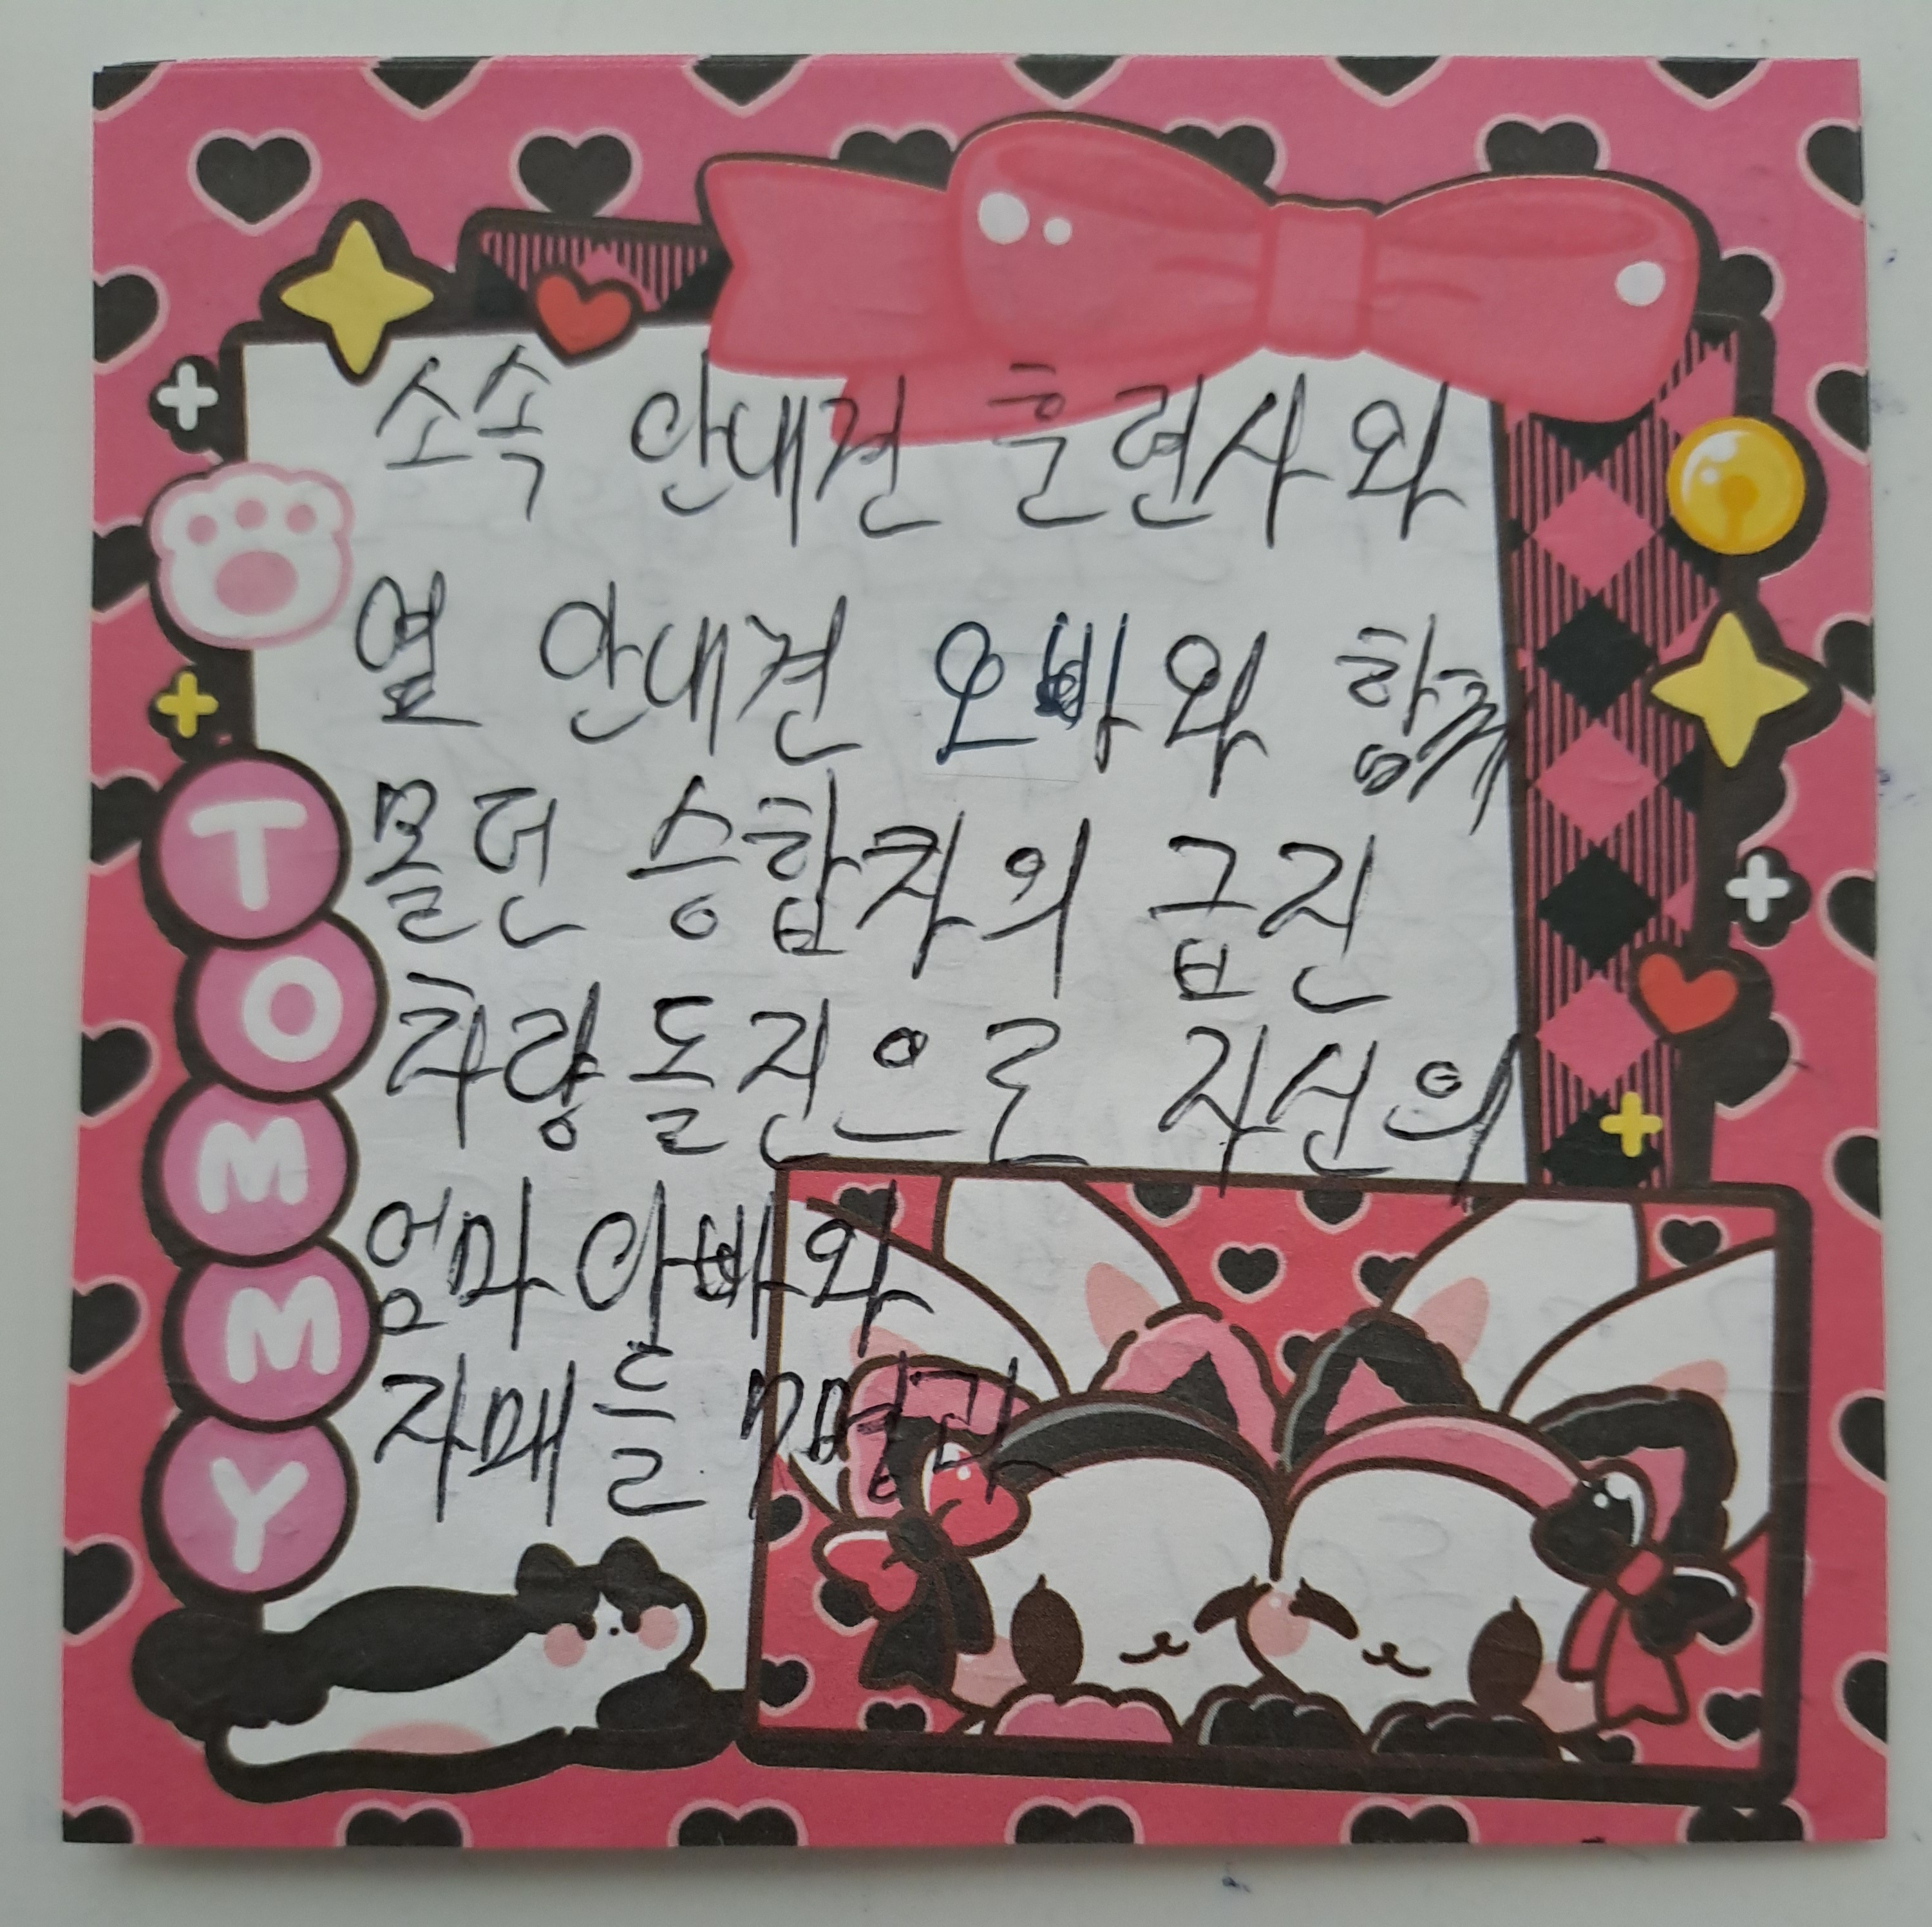 소속 안내견 훈련사와
옆 안내견 오빠와 함께
몰던 승합차의 급진
차량돌진으로 자신의
엄마아빠와
자매들 7명과
TOMMY